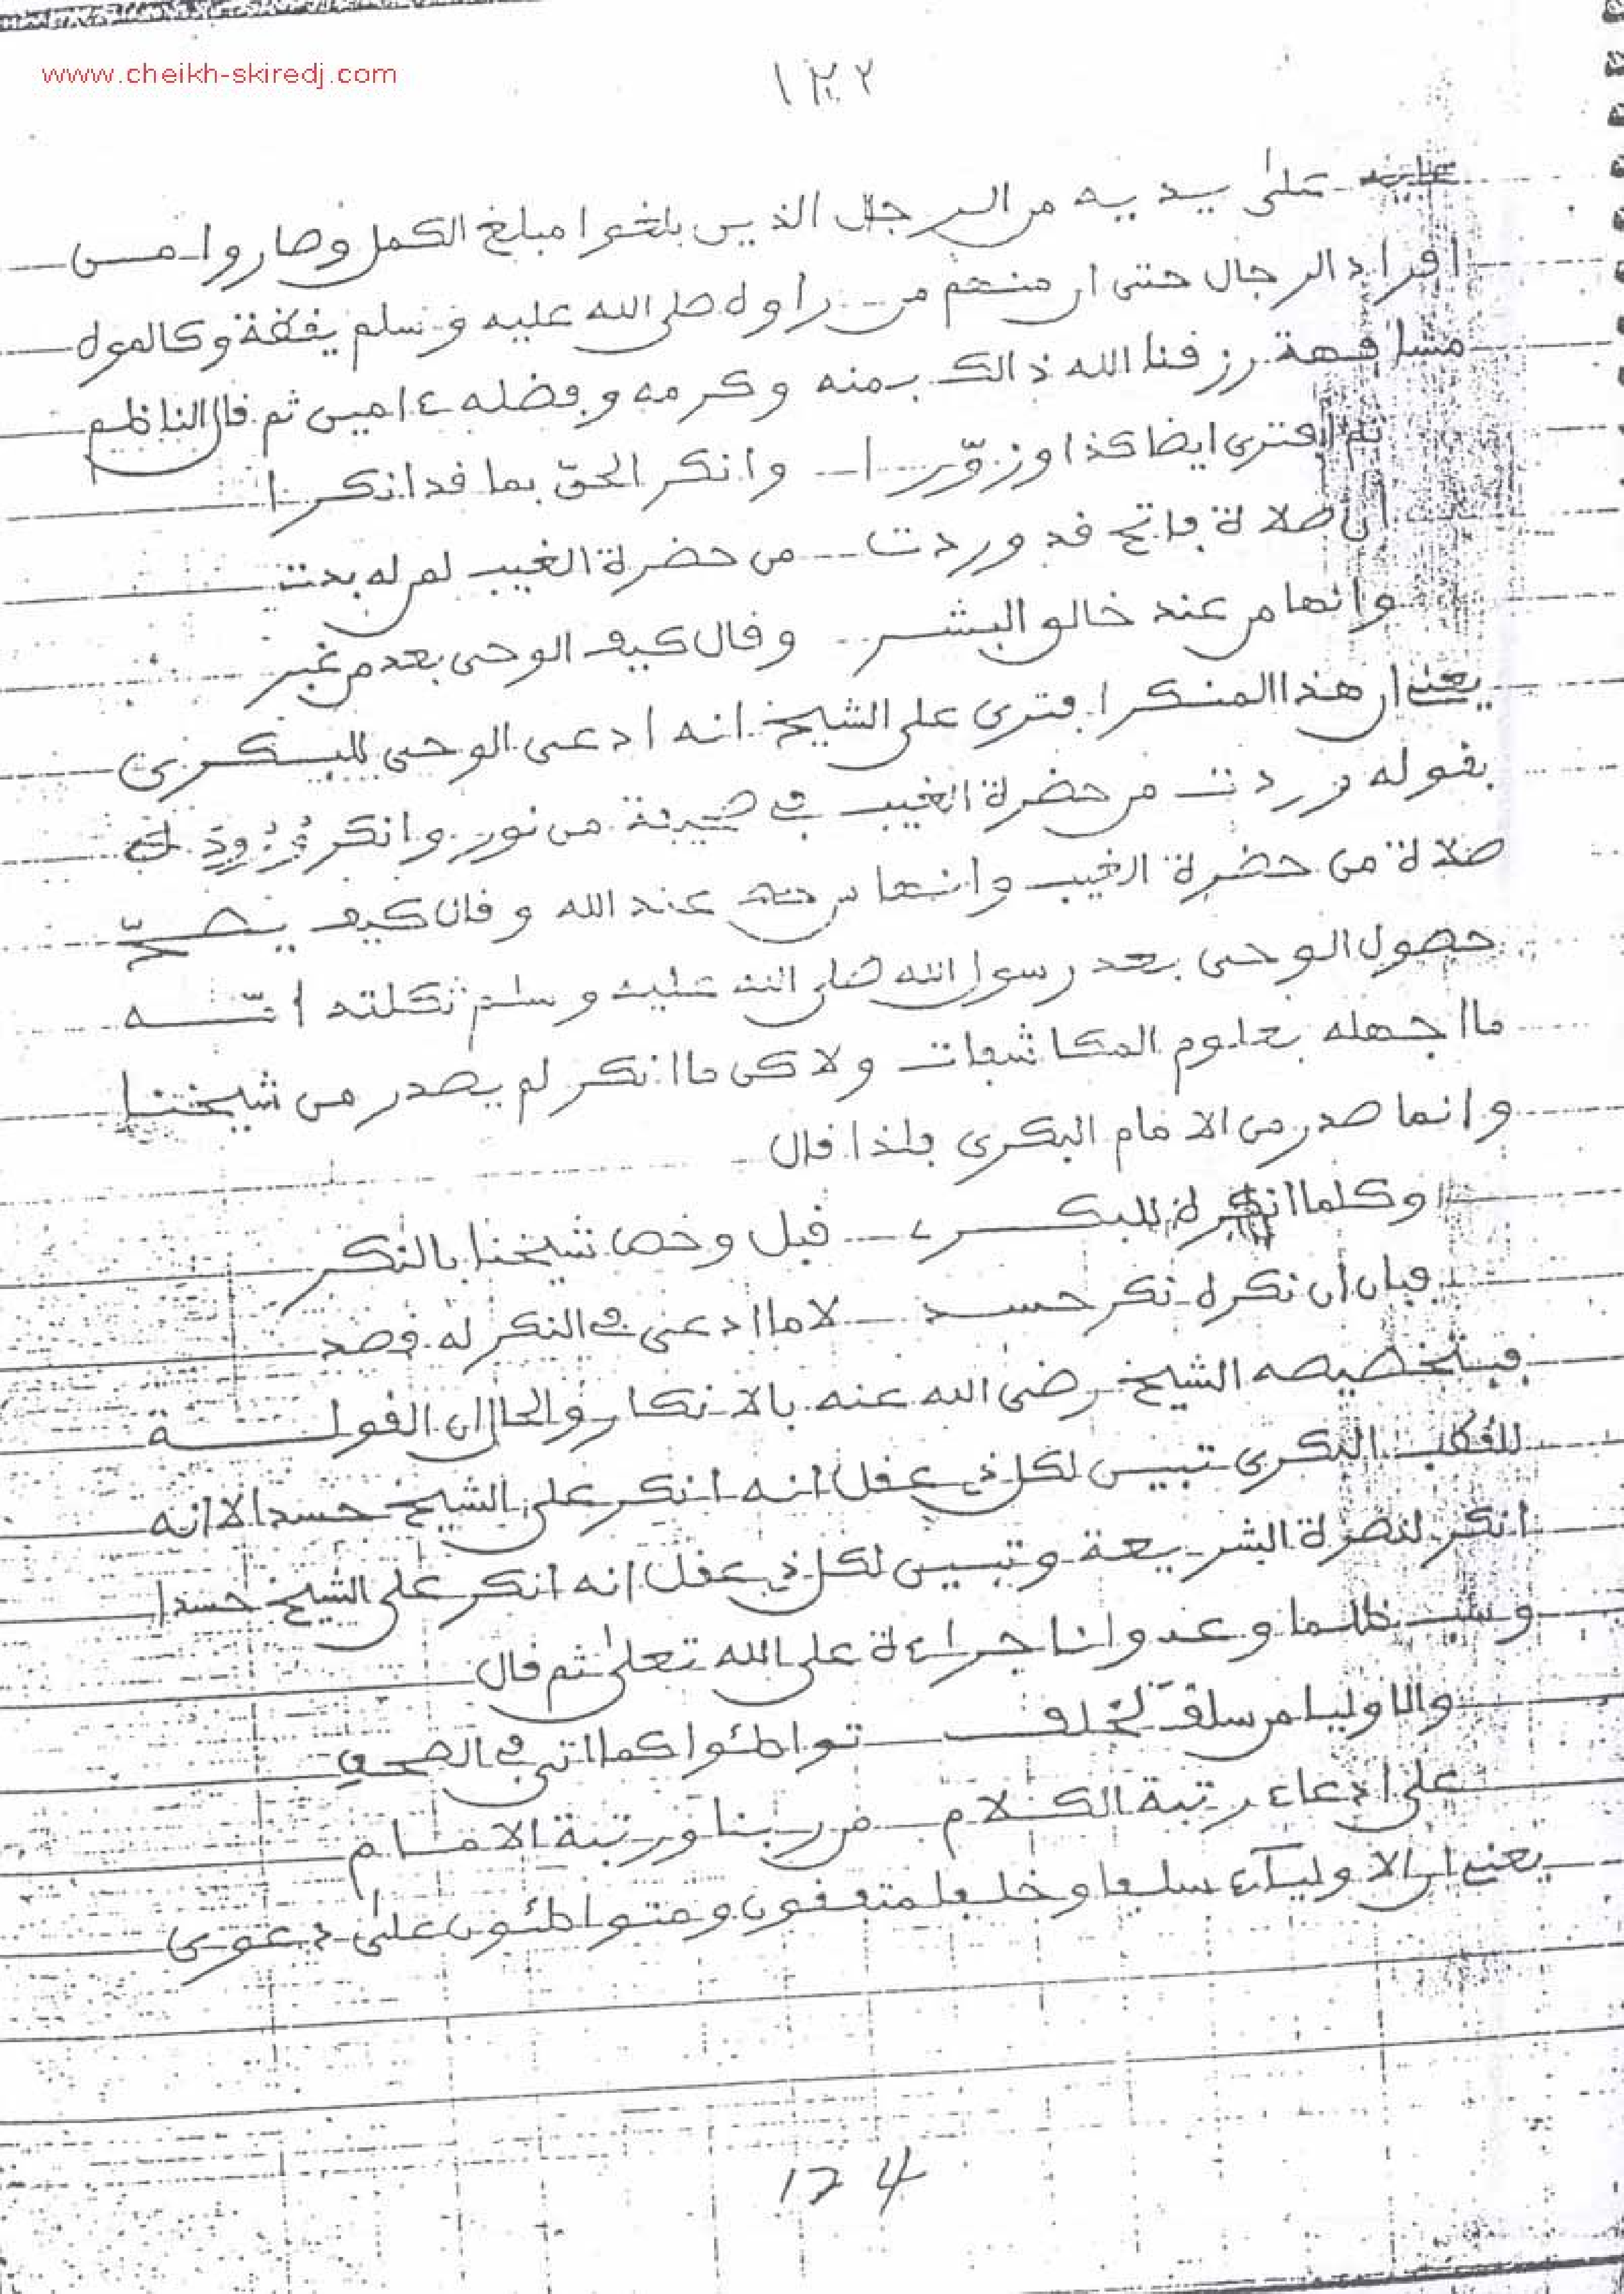 www.cheikh-skiredj.com
١٢٢
على يديه من الرجال الذين بلغوا مبلغ الكمل وصاروا من
افراد الرجال حتى ان منهم من راوه صلى الله عليه وسلم يقظة وكالموه
مشافهة رزقنا الله ذالك بمنه وكرمه وفضله ءامين ثم قال الناظم
ثم افترى ايضا كذا وزوّرا وانكر الحقّ بما قد انكرا
ان صلاة فاتح قد وردت من حضرة الغيب لمن له بدت
وانها من عند خالق البشر وقال كيف الوحى بعد من غبر
يعني ان هذا المنكر افترى على الشيخ انه ادعى الوحى للبكري
بقوله وردت من حضرة الغيب في صحيفة من نور وانكر وُرُودِ
صلاة من حضرة الغيب وانها من عند الله وقال كيف يصحّ
حصول الوحى بعد رسول الله صلى الله عليه وسلم ثكلته امّه
ما اجهله بعلوم المكاشفات ولاكن ما انكر لم يصدر من شيخنا
وانما صدر من الامام البكري فلذا قال
وكلما انكره للبكرى قبل وخص شيخنا بالنكر
فبان ان نكره نكر حسد لا ما ادعى في النكر له قصد
فبتخصيصه الشيخ رضى الله عنه بالانكار والحال ان القولة
للقطب البكرى تبين لكل ذي عقل انه انكر على الشيخ حسدا لا انه
انكر لنصرة الشريعة وتبين لكل ذي عقل انه انكر على الشيخ حسدا
وسب ظلما وعدوانا جراءة على الله تعلى ثم قال
والاوليا من سلف لخلف تواطئوا كما اتى في الصحف
على ادعاء رتبة الكلام من ربنا ورتبة الامام
يعني ان الاولياء سلفا وخلفا متفقون ومتواطئون على دعوى
124